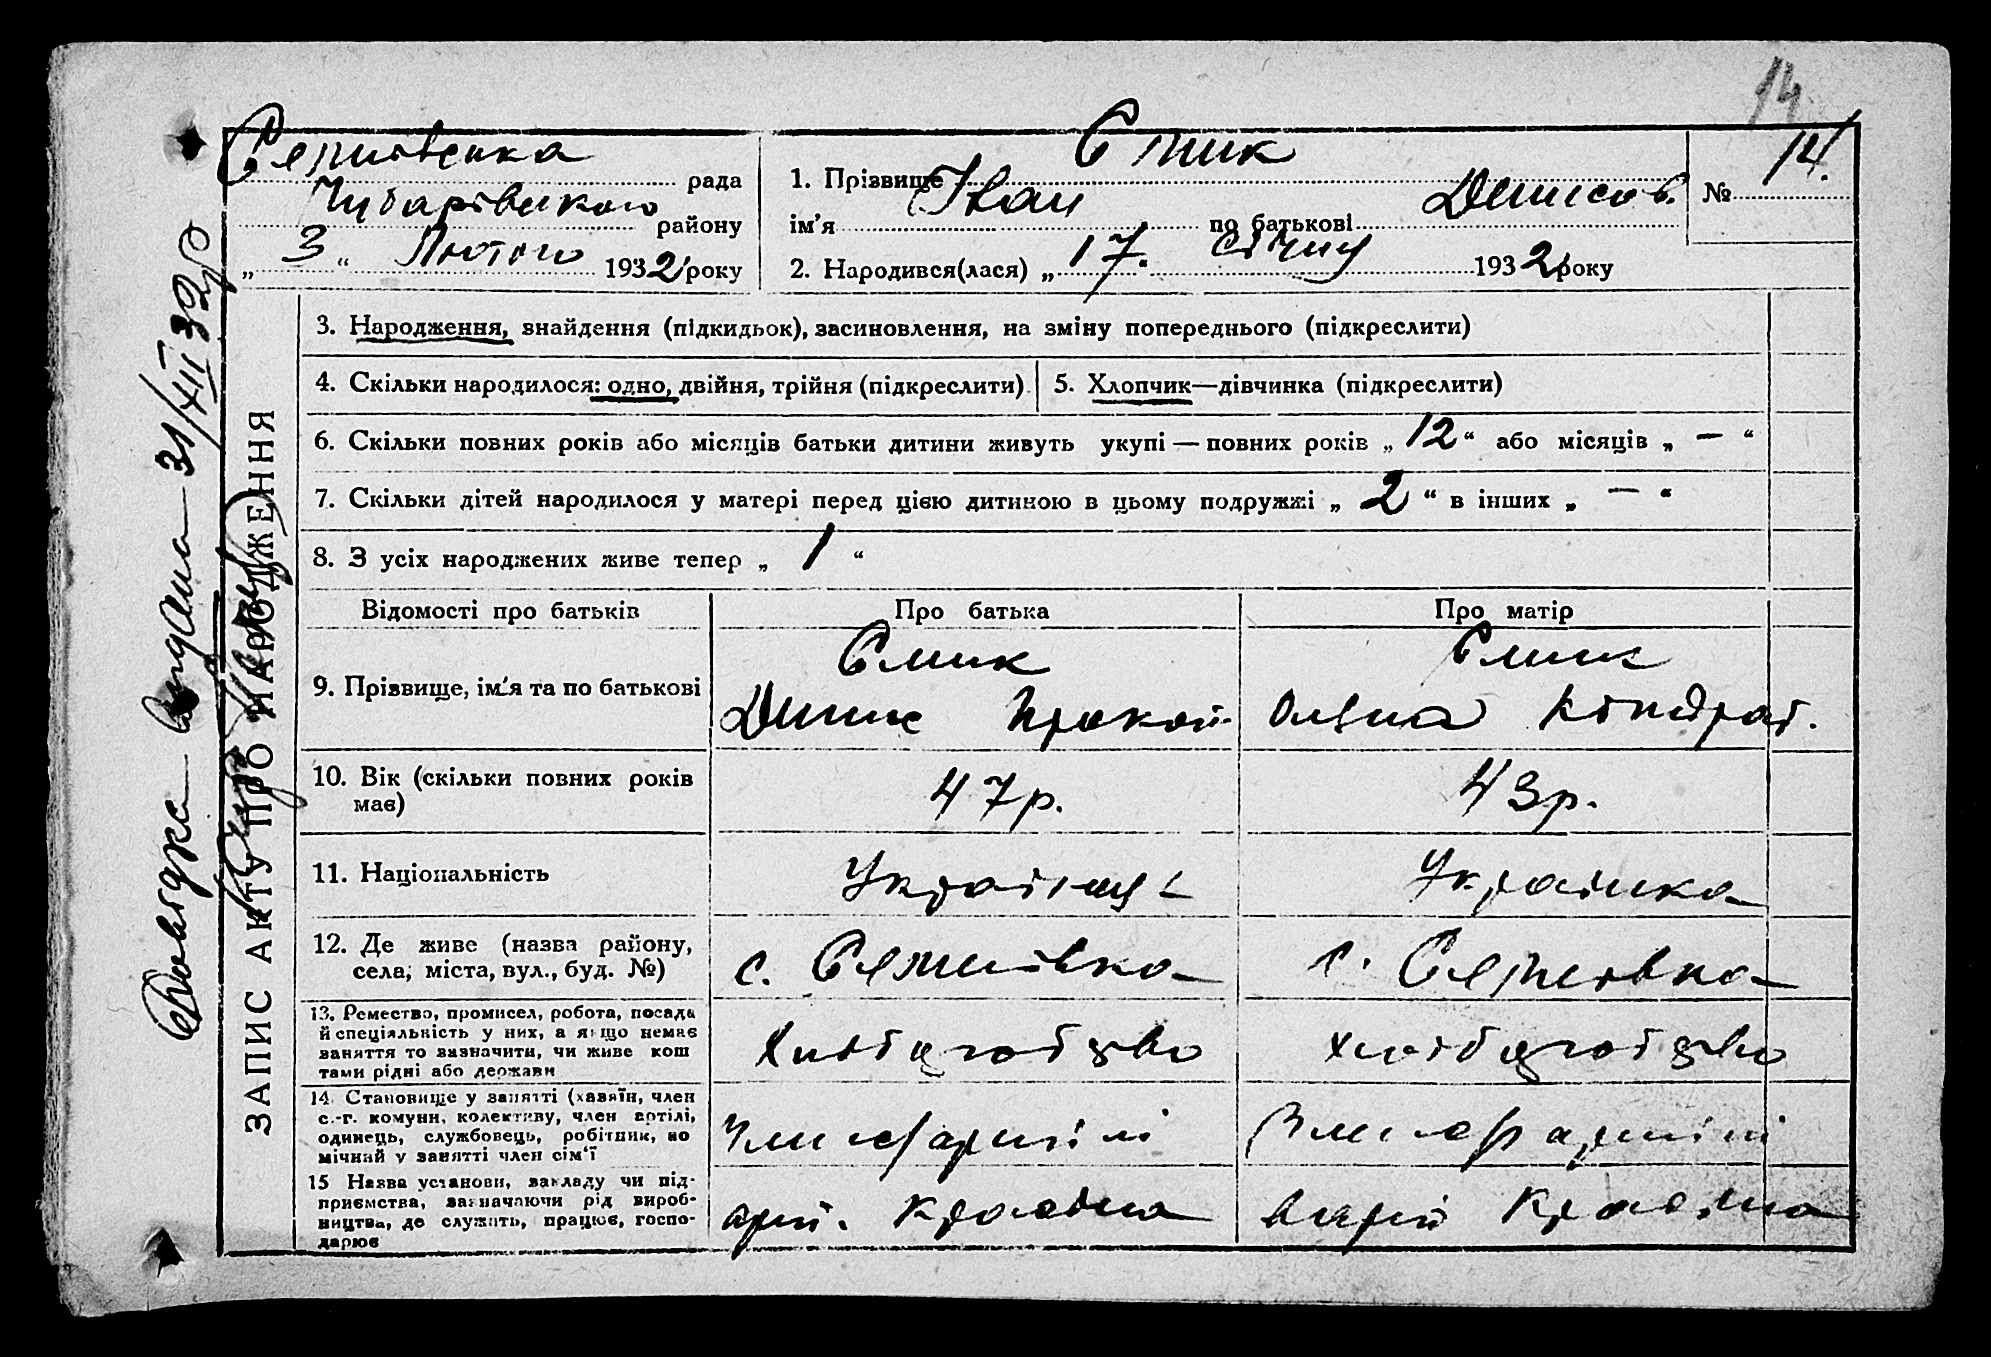 14
Семенівська рада
Чубарівського району
„ 3 “ Лютого 1932 року
1. Прізвище Смик
ім’я Іван по батькові Денисов.
2. Народився(лася) „ 17. “ січня 1932 року
№ 14.
ЗАПИС АКТУ ПРО НАРОДЖЕННЯ
Довідка видана 31/XII 32 р
3. Народження, знайдення (підкидьок), засиновлення, на зміну попереднього (підкреслити)
4. Скільки народилося: одно, двійня, трійня (підкреслити)
5. Хлопчик—дівчинка (підкреслити)
6. Скільки повних років або місяців батьки дитини живуть укупі — повних років „ 12 “ або місяців „ — “
7. Скільки дітей народилося у матері перед цією дитиною в цьому подружжі „ 2 “ в інших „ — “
8. З усіх народжених живе тепер „ 1 “
Відомості про батьків Про батька Про матір
9. Прізвище, ім’я та по батькові
Смик
Денис Прокоп.
Смик
Олена Кондрат.
10. Вік (скільки повних років
має)
47р.
43р.
11. Національність
Українць
Українка
12. Де живе (назва району,
села, міста, вул., буд. №)
с.
с.
13. Ремество, промисел, робота, посада
й спеціяльність у них, а якщо немає
заняття то зазначити, чи живе кош
тами рідні або держави
Хліборобство
хліборобство
14. Становище у занятті (хазяїн, член
с.-г. комуни, колективу, член артілі,
одинець, службовець, робітник, по
мічний у занятті член сім’ї
Член артіли
Член артіли
15 Назва установи, закладу чи під-
приємства, зазначаючи рід вироб-
ництва, де служить, працює, госпо-
дарює
арт.